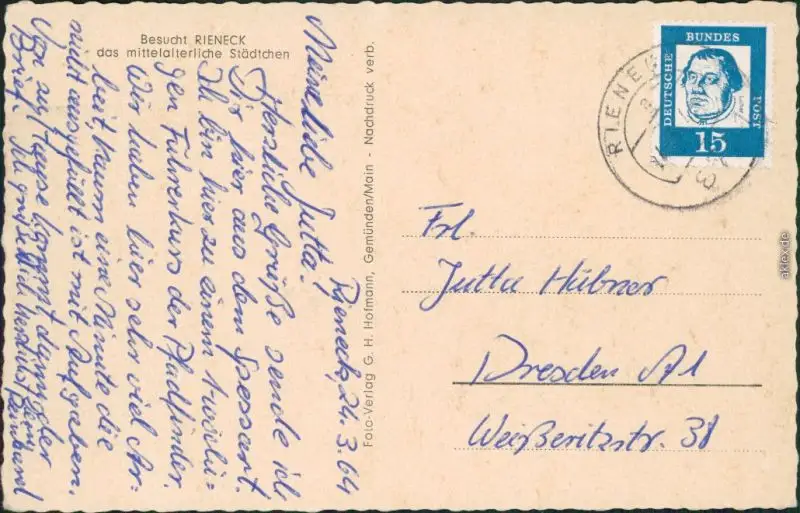 Besucht RIENECK
das mittelalterliche Städtchen
Rieneck, 24.3.64
Meine liebe Jutta!
Herzliche Grüße sende ich
Dir hier aus dem Spessart.
Ich bin hier zu einem 1-wöchi=
gen Führerkurs der Pfadfinder.
Wir haben hier sehr viel Ar-
beit, kaum eine Minute die
nicht ausgefüllt ist mit Aufgaben.
Von zu Hause kommt dann der
Brief. Ich grüße Dich herzlich Dein
Foto-Verlag G. H. Hofmann, Gemünden/Main - Nachdruck verb.
DEUTSCHE BUNDES POST
15
RIENECK
Frl.
Jutta Hübner
Dresden A1
Weißeritzstr. 38
aklex.de